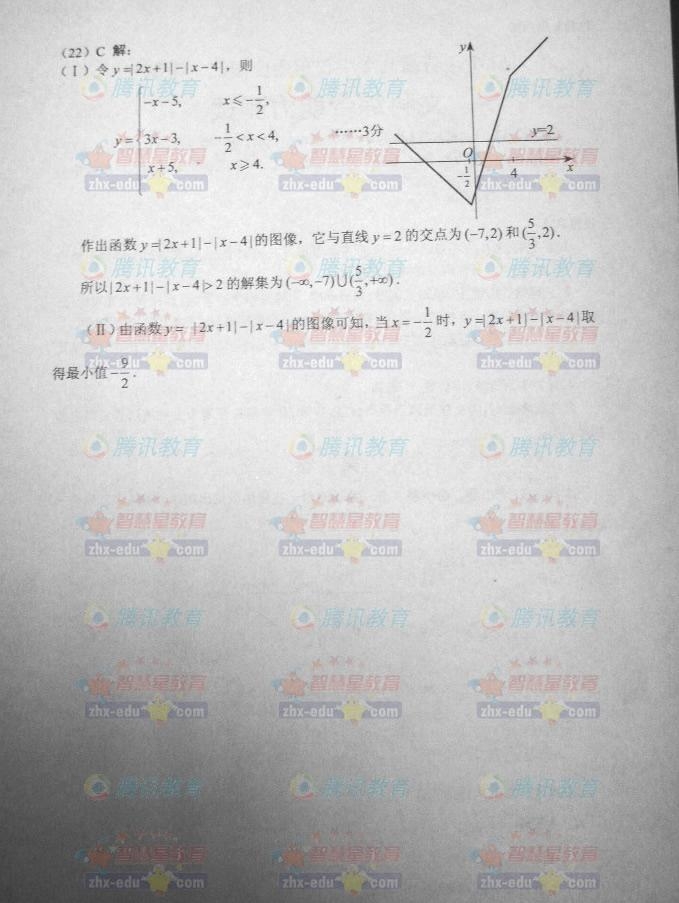 (22) C 解:
(Ⅰ) 令 y=|2x+1|-|x-4|, 则
-x-5, x⩽-1/2,
y= 3x-3, -1/2<x<4, ……3分
x+5, x⩾4.
y
y=2
O
-1/2
4
x
作出函数 y=|2x+1|-|x-4| 的图像, 它与直线 y=2 的交点为 (-7,2) 和 (5/3,2).
所以 |2x+1|-|x-4|>2 的解集为 (-∞,-7)∪(5/3,+∞).
(Ⅱ) 由函数 y= |2x+1|-|x-4| 的图像可知, 当 x=-1/2 时, y=|2x+1|-|x-4| 取
得最小值 -9/2.
腾讯教育 腾讯教育 腾讯教育
智慧星教育 智慧星教育 智慧星教育
zhx-edu com zhx-edu com zhx-edu com
腾讯教育 腾讯教育 腾讯教育
智慧星教育 智慧星教育 智慧星教育
zhx-edu com zhx-edu com zhx-edu com
腾讯教育 腾讯教育 腾讯教育
智慧星教育 智慧星教育 智慧星教育
zhx-edu com zhx-edu com zhx-edu com
腾讯教育 腾讯教育 腾讯教育
智慧星教育 智慧星教育 智慧星教育
zhx-edu com zhx-edu com zhx-edu com
腾讯教育 腾讯教育 腾讯教育
智慧星教育 智慧星教育 智慧星教育
zhx-edu com zhx-edu com zhx-edu com